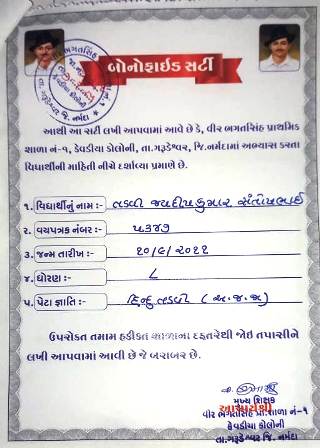 બોનોફાઇડ સર્ટી
આથી આ સર્ટી લખી આપવામાં આવે છે કે, વીર ભગતસિંહ પ્રાથમિક
શાળા નં-૧, કેવડીયા કોલોની, તા.ગરૂડેશ્વર, જિ.નર્મદામાં અભ્યાસ કરતા
વિદ્યાર્થીની માહિતી નીચે દર્શાવ્યા પ્રમાણે છે.
૧. વિદ્યાર્થીનું નામ :- તડવી જયદીપકુમાર સંતોષભાઈ
૨. વયપત્રક નંબર :- ૫૩૪૭
૩. જન્મ તારીખ :-
૪. ધોરણ :- ૮
૫. પેટા જ્ઞાતિ :- હિન્દુ તડવી (અ.જ.જા)
ઉપરોક્ત તમામ હકીકત શાળાના દફતરેથી જોઇ તપાસીને
લખી આપવામાં આવી છે જે બરાબર છે.
મુખ્ય શિક્ષક
આચાર્યશ્રી
વીર ભગતસિંહ પ્રા.શાળા નં-૧
કેવડીયા કોલોની
તા.ગરૂડેશ્વર જિ. નર્મદા